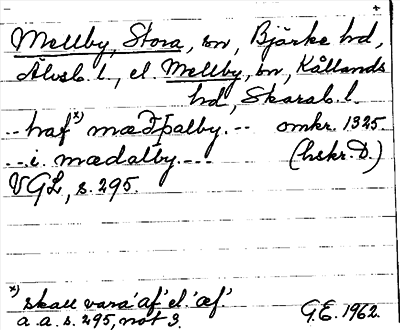 Mellby, Stora, sn, Bjärke hd,
Älvsb. l., el. Mellby, sn, Kållands
hd, Skarab. l.
-- haf x) mæðþalby. -- omkr. 1325.
-- i. mædalby. --- (hskr. D.)
VGL, s. 295.
x) skall vara 'af' el. 'æf'
a. a. s. 295, not 3. G.E. 1962.